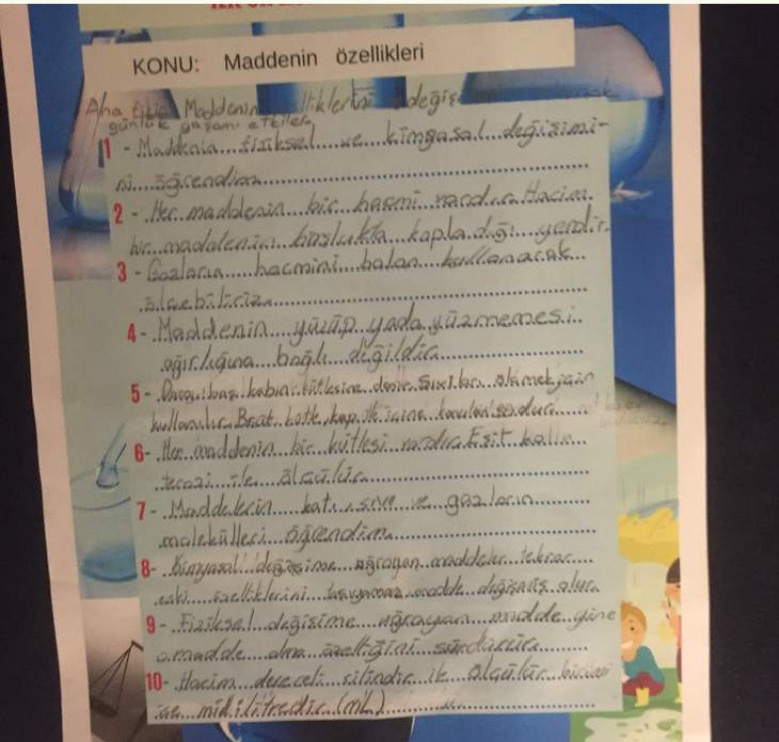 KONU: Maddenin özellikleri
Ana Maddenin
günlük yaşamı etkiler
1 - Maddenin fiziksel ve kimyasal değişimi-
ni öğrendim
2 - Her maddenin bir hacmi vardır. Hacim
bir maddenin boşlukta kapladığı yerdir.
3 - Gazların hacmini balon kullanarak
ölçebiliriz
4 - Maddenin yüzüp yada yüzmemesi
ağırlığına bağlı değildir
5 - boş kabın kütlesine denir. Sıvıları ölçmek için
kullanılır. Brüt
6 - Her maddenin bir kütlesi vardır. Eşit kollu
terazi ile ölçülür
7 - Maddelerin katı, sıvı ve gazların
malekülleri öğrendim
8 - Kimyasal değişime uğrayan maddeler tekrar
eski özelliklerini taşıyamaz madde değişmiş olur
9 - Fiziksel değişime uğrayan madde yine
o madde olma özelliğini sürdürür
10 - Hacim dereceli silindir ile ölçülür birimi
ise mililitredir (mL)